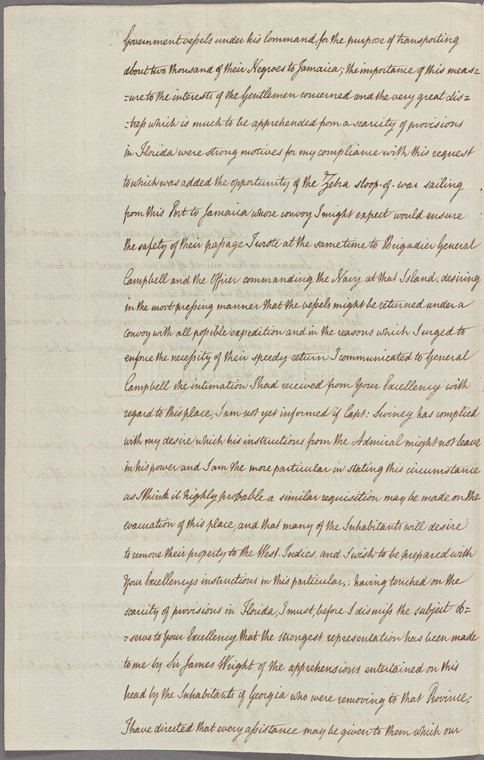 Government vessels under his Command, for the purpose of transporting
about two thousand of their Negroes to Jamaica; the importance of this meas=
=ure to the interests of the Gentlemen concerned and the very great dis=
=tress which is much to be apprehended from a scarcity of provisions
in Florida were strong motives for my compliance with this request
to which was added the opportunity of the Zebra sloop-of-war sailing
from this Port to Jamaica whose convoy I might expect would ensure
the safety of their passage I wrote at the same time to Brigadier General
Campbell and the Officer commanding the Navy at that Island, desiring
in the most pressing manner that the vessels might be returned under a
convoy with all possible expedition and in the reasons which I urged to
enforce the necessity of their speedy return I communicated to General
Campbell the intimation I had received from Your Excellency with
regard to this place, I am not yet informed if Capt: Swiney has complied
with my desire which his instructions from the Admiral might not leave
in his power and I am the more particular in stating this circumstance
as I think it highly probable a similar requisition may be made on the
evacuation of this place, and that many of the Inhabitants will desire
to remove their property to the West Indies, and I wish to be prepared with
Your Excellencys instructions in this particular,: having touched on the
scarcity of provisions in Florida, I must, before I dismiss the subject ob=
=serve to Your Excellency that the strongest representation has been made
to me by Sir James Wright of the apprehensions entertained on this
head by the Inhabitants of Georgia who were removing to that Province;
I have directed that every assistance may be given to them which our